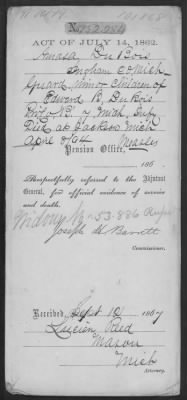 No 152,284
ACT OF JULY 14, 1862.
Amasa DuBois
Ingham Co Mich
Guard. Minor Children of
Edward B. DuBois
Priv. B. 7 Mich. Inf.
Died at Jackson Mich
April 8/64 Measles
Pension Office,
186 .
Respectfully referred to the Adjutant
General, for official evidence of service
and death.
Widows No 53.886
Joseph H. Barrett
Commissioner.
Received, Sept 10 1867
Lucien Reed
Mason
Mich
Attorney.